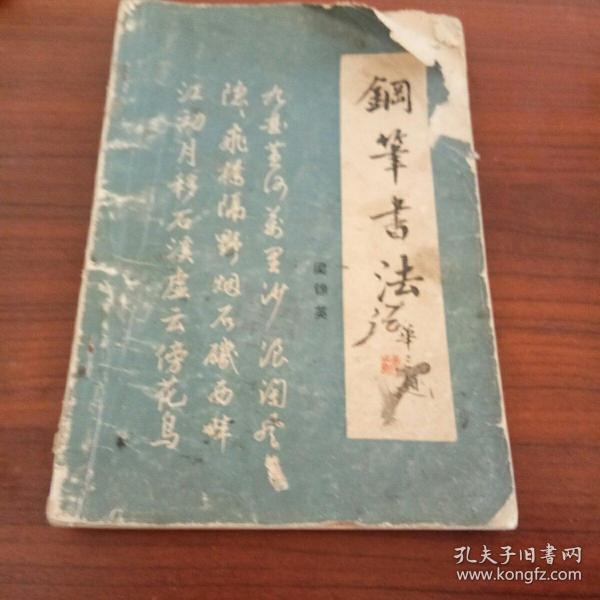 鋼筆書法
梁锦英
九曲黄河万里沙 浪淘
隐隐飞桥隔野烟 石矶西畔
江动月移石溪虚云傍花鸟
孔夫子旧书网
www.kongfz.com